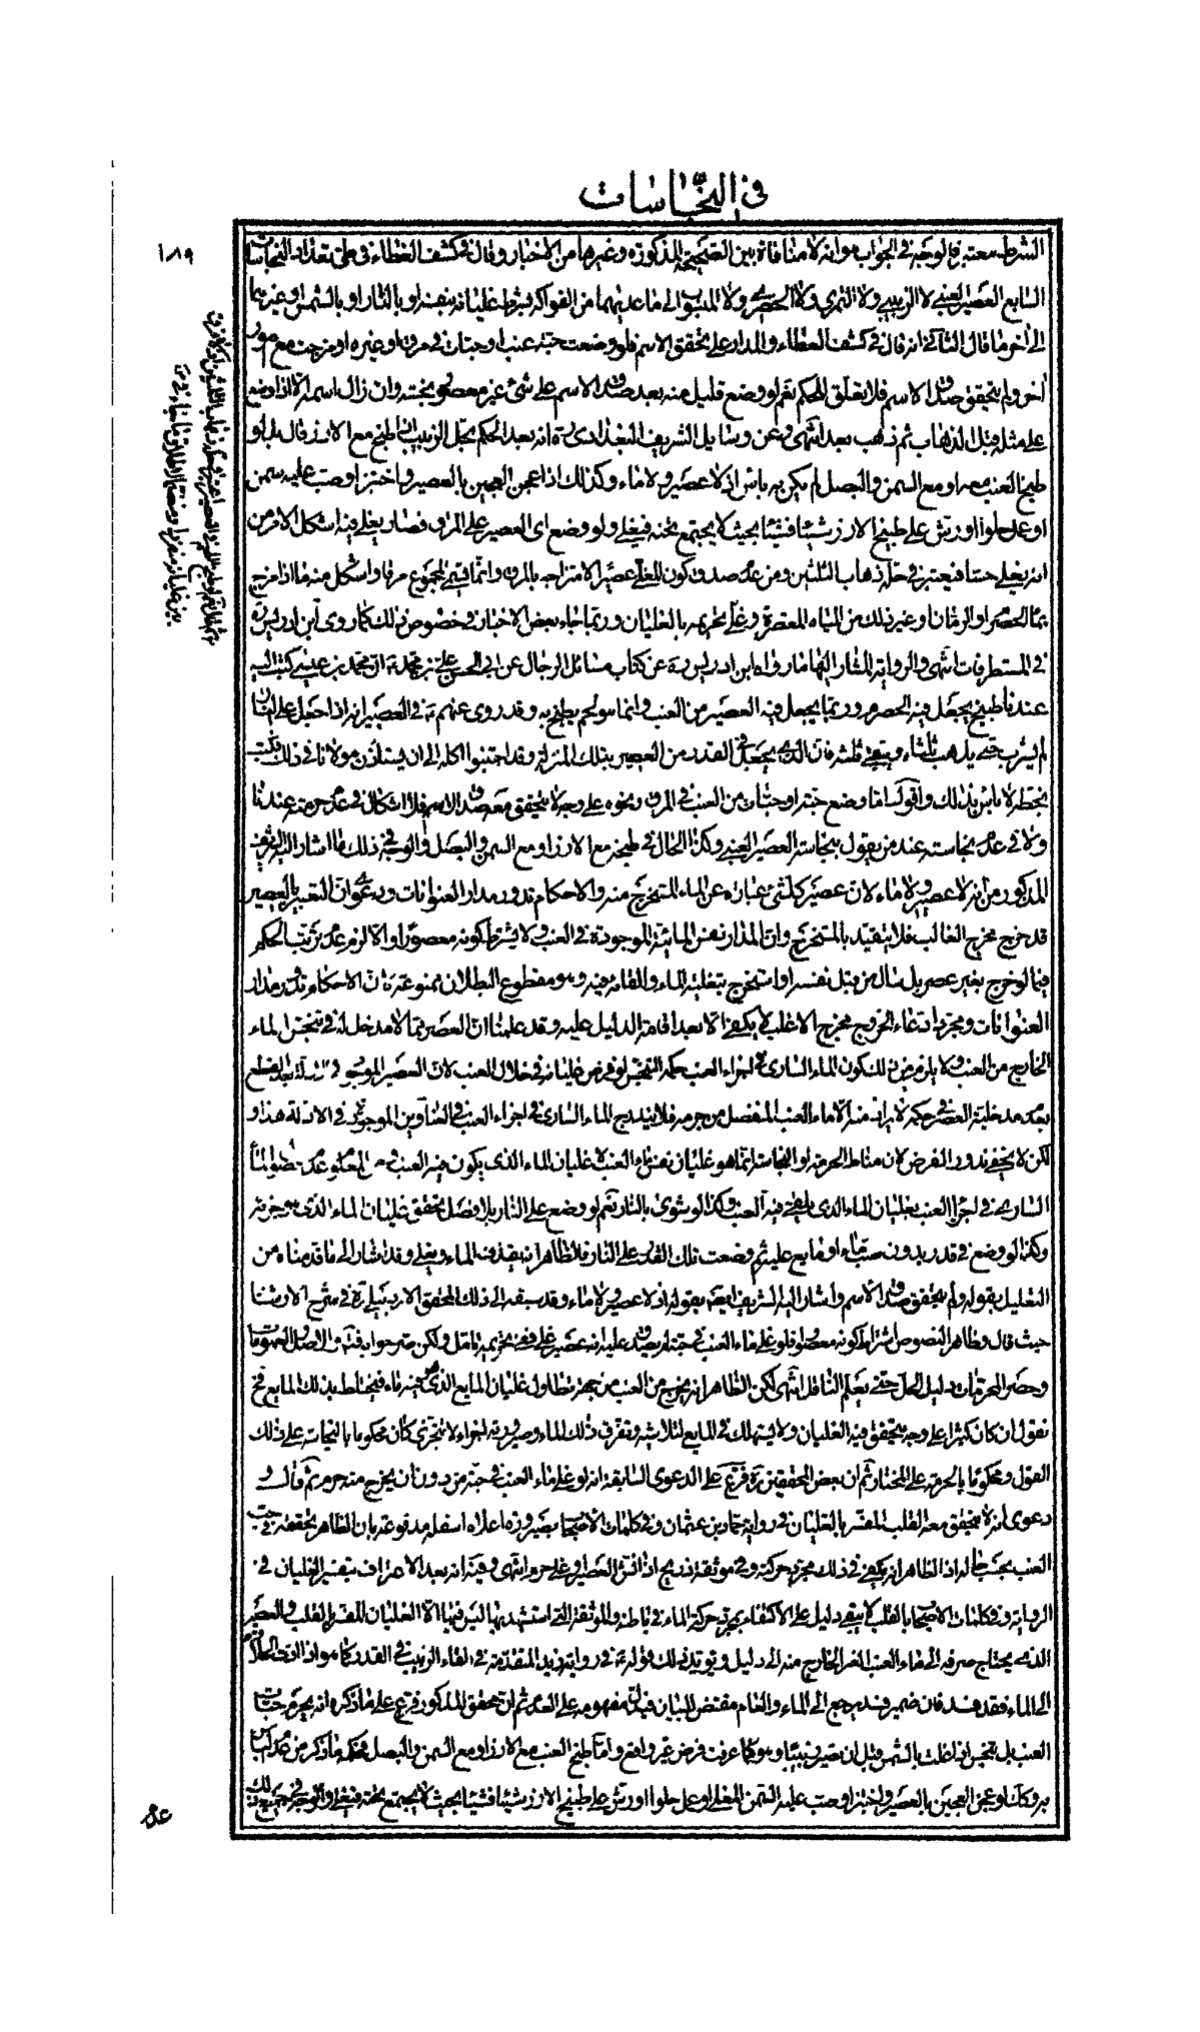 في النجاسات
١٨٩
الشرط معتبر فالوجه في الجواب هو انه لا منافاة بين الصحيحة المذكورة وغيرها من الاخبار وقال في كشف الغطاء في طي تعداد النجاسات
السابع العصير العنبي لا الزبيبي ولا التمري ولا الحصرمي ولا المنسوب الى ما عداهما من الفواكه بشرط غليانه بنفسه او بالنار او بالشمس او غيرها
الى اخر ما قال الثاني انه قال في كشف الغطاء والمدار على تحقق الاسم فلو وضعت حبة عنب او حبات في مرق او غيره او مزجت مع امور
اخر ولم يتحقق صدق الاسم فلا يتعلق الحكم نعم لو وضع قليل منه بعد صدق الاسم على شيء غير معصوم نجسه وان زال اسمه الا اذا وضع
على مثله قبل الذهاب ثم ذهب بعد انتهى وعن وسايل الشريف البغدادي ره انه بعد الحكم بحل الزبيب اذا طبخ مع الارز قال بل لو
طبخ العنب معه او مع السمن والبصل لم يكن به باس اذ لا عصير ولا ماء وكذلك اذا عجن العجين بالعصير واختبز او صب عليه سمن
او عمل حلوا او رش على طبيخ الارز شيئا فشيئا بحيث لا يجتمع تحته فيغلي ولو وضع اي العصير على المرق فصار يغلي فيه اشكل الامر من
انه يغلي حسا فيعتبر في حله ذهاب الثلثين ومن عدم صدق كون المغلي عصيرا لامتزاجه بالمرق وانما يسمى المجموع مرقا واشكل منه ما اذا مزج
بماء الحصرم او الرمان او غير ذلك من المياه المعتصرة وغلى بحرمته بالغليان وربما جاء بعض الاخبار في خصوص ذلك كما روى ابن ادريس ره
في المستطرفات انتهى والرواية المشار اليها ما رواه ابن ادريس ره عن كتاب مسائل الرجال عن ابي الحسن علي بن محمد ع ان محمد بن عيسى كتب اليه
عندنا طبيخ يجعل فيه الحصرم وربما يجعل فيه العصير من العنب وانما هو لحم يطبخ به وقد روى عنهم ع في العصير انه اذا جعل على النار
لم يشرب حتى يذهب ثلثاه ويبقى ثلثه فان الذي يجعل في القدر من العصير بتلك المنزلة وقد اجتنبوا اكله الى ان يستاذن مولانا في ذلك فكتب
بخطه لا باس بذلك واقول اما وضع حبة او حبات من العنب في المرق ونحوه على وجه لا يتحقق معه صدق الاسم فلا اشكال في عدم حرمته عندنا
ولا في عدم نجاسته عند من يقول بنجاسة العصير العنبي وكذا الحال في طبخه مع الارز او مع السمن والبصل والوجه في ذلك ما اشار اليه الشريف
المذكور من انه لا عصير ولا ماء لان عصير كل شيء عبارة عن الماء المستخرج منه والاحكام تدور مدار العنوانات ودعوى ان التعبير بالعصير
قد خرج مخرج الغالب فلا يتقيد بالمستخرج وان المدار نفس المائية الموجودة في العنب ولا يشترط كونه معصورا والا لزم عدم ترتب الحكم
فيما لو خرج بغير عصر بل سال من قبل نفسه او استخرج بتغلية الماء والقائه فيه وهو مقطوع البطلان ممنوعة فان الاحكام تدور مدار
العنوانات ومجرد ادعاء الخروج مخرج الاغلب لا يكفي الا بعد اقامة الدليل عليه وقد علمنا ان العصر مما لا مدخل له في تنجس الماء
الخارج من العنب ولا يلزم من ذلك كون الماء الساري في اجزاء العنب حكمه التنجس لو فرض غليانه في خلال العنب لان العصير الموجود في الادلة بعد القطع
بعدم مدخلية العصر في حكمه لا يراد منه الا ماء العنب المنفصل من جرمه فلا يندرج الماء الساري في اجزاء العنب في العناوين الموجودة في الادلة هذا و
لكن لا يخفى ندور الفرض لان مناط الحرمة او النجاسة انما هو غليان نفس ماء العنب لا غليان الماء الذي يكون فيه العنب ومن المعلوم عدم حصول للماء
الساري في اجزاء العنب بغليان الماء الذي يلقى فيه العنب وكذا لو شوي بالنار نعم لو وضع على النار بلا فصل تحقق غليان الماء الذي هو جزئه
وكذا لو وضع في قدر بدون صب ماء او مايع عليه ثم وضعت تلك القدر على النار فالظاهر انه يقذف الماء ويغلي وقد اشار الى ما قدمناه من
التعليل بقوله ولم يتحقق صدق الاسم واشار اليه الشريف ايضا بقوله اذ لا عصير ولا ماء وقد سبقه الى ذلك المحقق الاردبيلي ره في شرح الارشاد
حيث قال وظاهر النصوص اشتراط كونه معصورا فلو غلى ماء العنب في حبه لم يصدق عليه انه عصير غلى ففي تحريمه تامل ولكن صرحوا به فتامل والاصل والعمومات
وحصر المحرمات دليل الحل حتى يعلم الناقل انتهى لكن الظاهر انه يخرج من العنب من جهة تطاول غليان المايع الذي هو فيه ماء فيختلط بذلك المايع فح
نقول ان كان كثيرا على وجه يتحقق فيه الغليان ولا يستهلك في المايع لتلاشيه وتفرق ذلك الماء وصيرورته اجزاء لا تتجزى كان محكوما بالنجاسة على ذلك
القول ومحكوما بالحرمة على المختار ثم ان بعض المحققين ره فرع على الدعوى السابقة انه لو غلى ماء العنب في حبه من دون ان يخرج منه حرم ثم قال و
دعوى انه لا يتحقق معه القلب المفسر بالغليان في رواية حماد بن عثمان وفي كلمات الاصحاب بصيرورة اعلاه اسفله مدفوعة بان الظاهر تحققه في حب
العنب بحسب حاله اذ الظاهر انه يكفي في ذلك مجرد حركته وفي موثقة ذريح اذا نش العصير او غلى حرم انتهى وفيه انه بعد الاعتراف بتفسير الغليان في
الرواية وفي كلمات الاصحاب بالقلب لا يبقى دليل على الاكتفاء بمجرد حركة الماء في باطنه والموثقة التي استشهد بها ليس فيها الا الغليان المفسر بالقلب والعصير
الذي يحتاج صرفه الى ماء العنب الغير الخارج منه الى دليل ويؤيد ذلك قوله ع في رواية زيد المتقدمة في القاء الزبيب في القدر كما هو اذا ادت الحلاوة
الى الماء فقد فسد فان ضمير فسد يرجع الى الماء والمقام مقتض للبيان فيدل مفهومه على العدم ثم ان المحقق المذكور فرع على ما ذكره انه يحرم حبات
العنب بل تنجس اذا غلت بالشمس قبل ان تصير زبيبا وهو كما عرفت فرض غير واقع واما طبخ العنب مع الارز او مع السمن والبصل فحكمه ما ذكر من عدم الباس
به وكذا لو عجن العجين بالعصير واختبز او صب عليه السمن المغلى او عمل حلوا او رش على طبيخ الارز شيئا فشيئا بحيث لا يجتمع تحته فيغلي والوجه في جميع ذلك
عدم